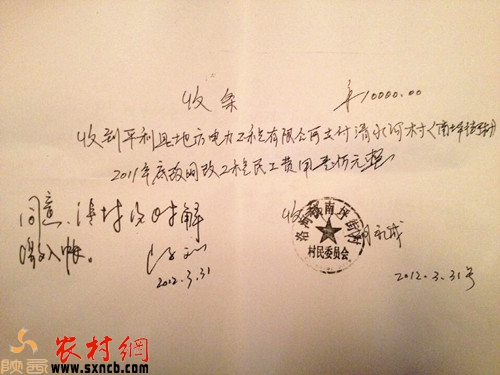 收条
￥10000.00
收到平利县地方电力工程有限公司支付清水河村(南坪
2011年底改网改工程民工费用壹万元整
同意
缴入帐。
2012.3.31
收
洛河镇南坪街村
村民委员会
2012.3.31号
陕西
农村網
www.sxncb.com